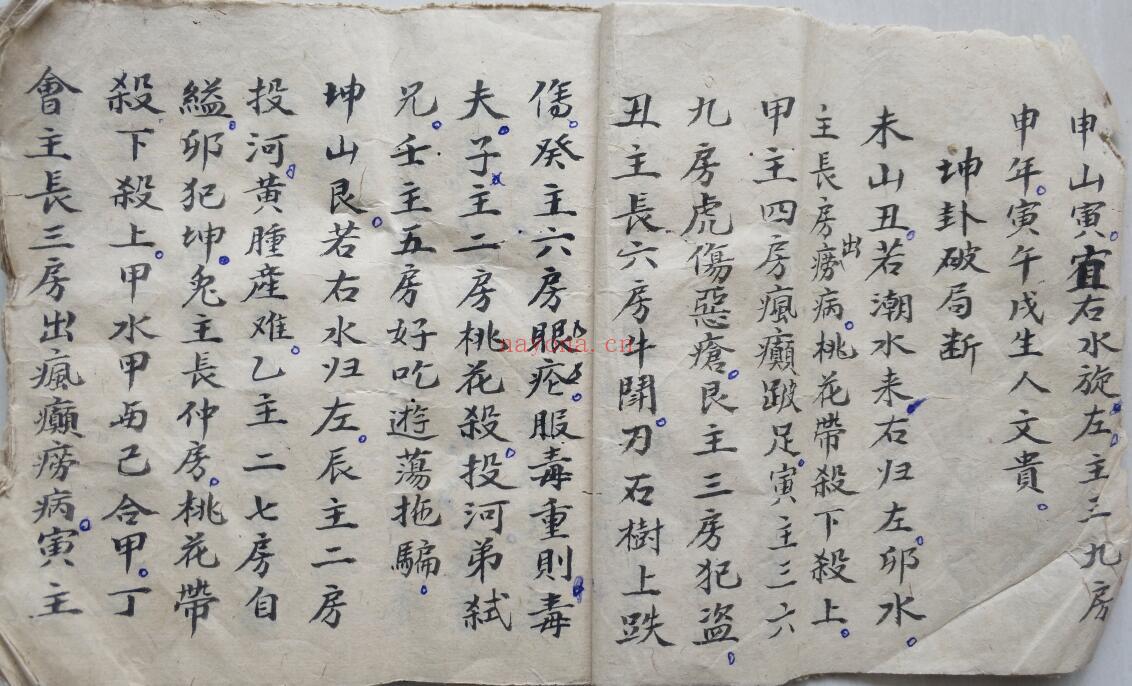 申山寅。宜右水旋左。主三九房
申年。寅午戌生人文貴。
坤卦破局断
未山丑。若潮水来。右归左。卯水。
主長房出痨病。桃花帶殺下殺上。
甲主四房瘋癲跛足。寅主三六
九房虎傷惡瘡。艮主三房犯盗。
丑主長六房牛鬪。刀石樹上跌
傷。癸主六房眼疙。服毒重則毒
夫。子主二房桃花殺。投河弟弑
兄。壬主五房好吃遊蕩拖騙。
坤山艮。若右水归左。辰主二房
投河。黄腫産难。乙主二七房自
縊。卯犯坤。兔主長仲房。桃花帶
殺下殺上。甲水甲兩己合甲。丁
會主長三房出瘋癲痨病。寅主
nayona.cn